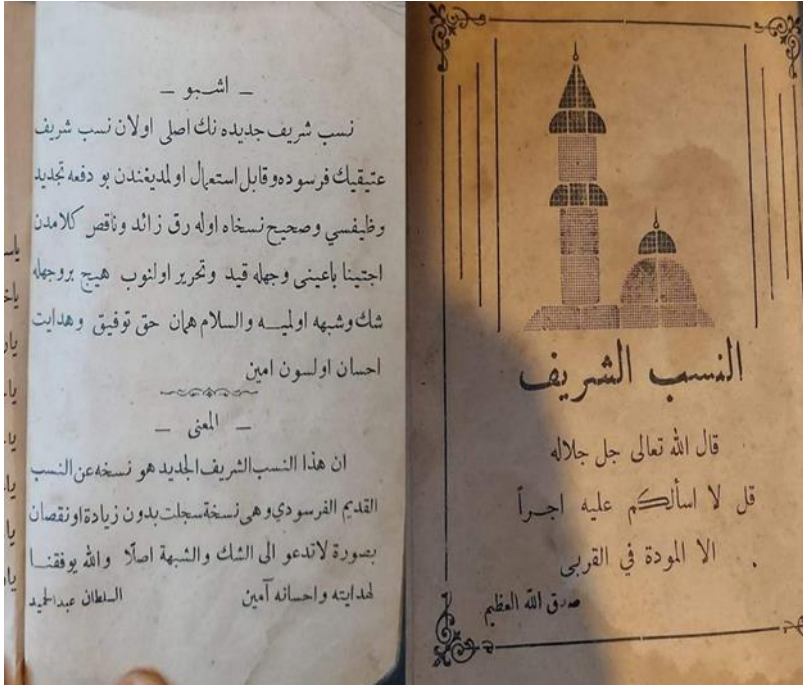 النسب الشريف
قال الله تعالى جل جلاله
قل لا اسألكم عليه اجراً
الا المودة في القربى
صدق الله العظيم
ـ اشبو ـ
نسب شريف جديده نك اصلى اولان نسب شريف
عتيقيك فرسوده وقابل استعمال اولمديغندن بو دفعه تجديد
وظيفسي وصحيح نسخاه اوله رق زائد وناقص كلامدن
اجتينا باعينى وجهله قيد وتحرير اولنوب هيچ بروجهله
شك وشبهه اولميه والسلام همان حق توفيق وهدايت
احسان اولسون امين
ـ المعنى ـ
ان هذا النسب الشريف الجديد هو نسخه عن النسب
القديم الفرسودي وهى نسخة سجلت بدون زيادة او نقصان
بصورة لاتدعو الى الشك والشبهة اصلًا والله يوفقنا
لهدايته واحسانه آمين السلطان عبدالحميد